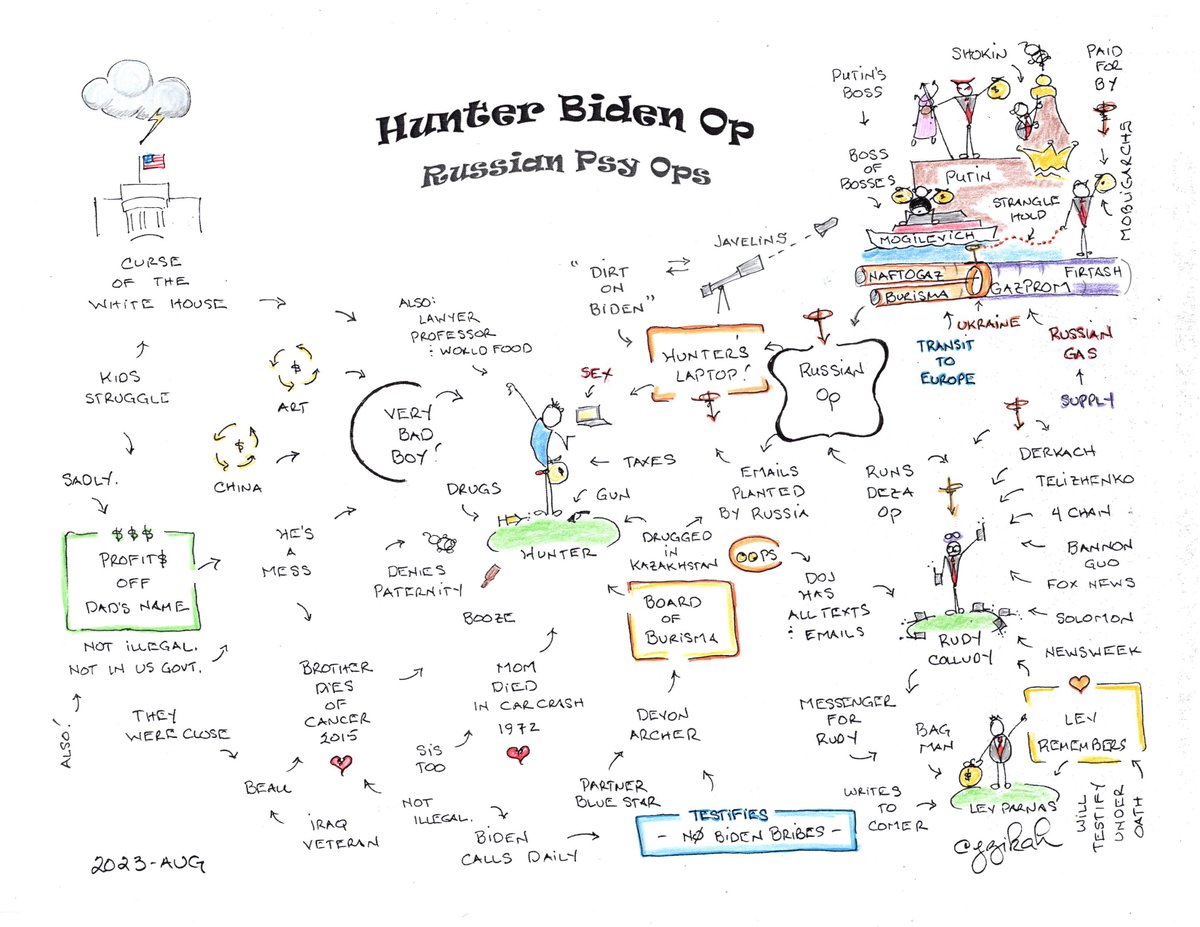 Hunter Biden Op
Russian Psy Ops
CURSE
OF THE
WHITE HOUSE
KIDS
STRUGGLE
SADLY.
$$$
PROFIT$
OFF
DAD'S NAME
NOT ILLEGAL.
NOT IN US GOVT.
ALSO!
THEY
WERE CLOSE
BEAU
IRAQ
VETERAN
2023-AUG
$
ART
$
CHINA
HE'S
A
MESS
BROTHER
DIES
OF
CANCER
2015
ALSO:
LAWYER
PROFESSOR
: WORLD FOOD
VERY
BAD
BOY!
DRUGS
DENIES
PATERNITY
BOOZE
SEX
TAXES
GUN
HUNTER
MOM
DIED
IN CAR CRASH
1972
SIS
TOO
NOT
ILLEGAL.
BIDEN
CALLS DAILY
"DIRT
ON
BIDEN"
JAVELINS
HUNTER'S
LAPTOP!
RUSSIAN
OP
EMAILS
PLANTED
BY RUSSIA
DRUGGED
IN
KAZAKHSTAN
OOPS
DOJ
HAS
ALL TEXTS
: EMAILS
BOARD
OF
BURISMA
DEVON
ARCHER
PARTNER
BLUE STAR
TESTIFIES
- NO BIDEN BRIBES -
PUTIN'S
BOSS
BOSS
OF
BOSSES
SHOKIN
PAID
FOR
BY
MOBLIGARCHS
PUTIN
STRANGLE
HOLD
MOGILEVICH
NAFTOGAZ
BURISMA
GAZPROM
FIRTASH
UKRAINE
TRANSIT
TO
EUROPE
RUSSIAN
GAS
SUPPLY
RUNS
DEZA
OP
DERKACH
TELIZHENKO
4 CHAN
BANNON
GUO
FOX NEWS
SOLOMON
NEWSWEEK
RUDY
COLLUDY
MESSENGER
FOR
RUDY
BAG
MAN
$
LEV
REMEMBERS
WRITES
TO
COMER
LEV PARNAS
WILL
TESTIFY
UNDER
OATH